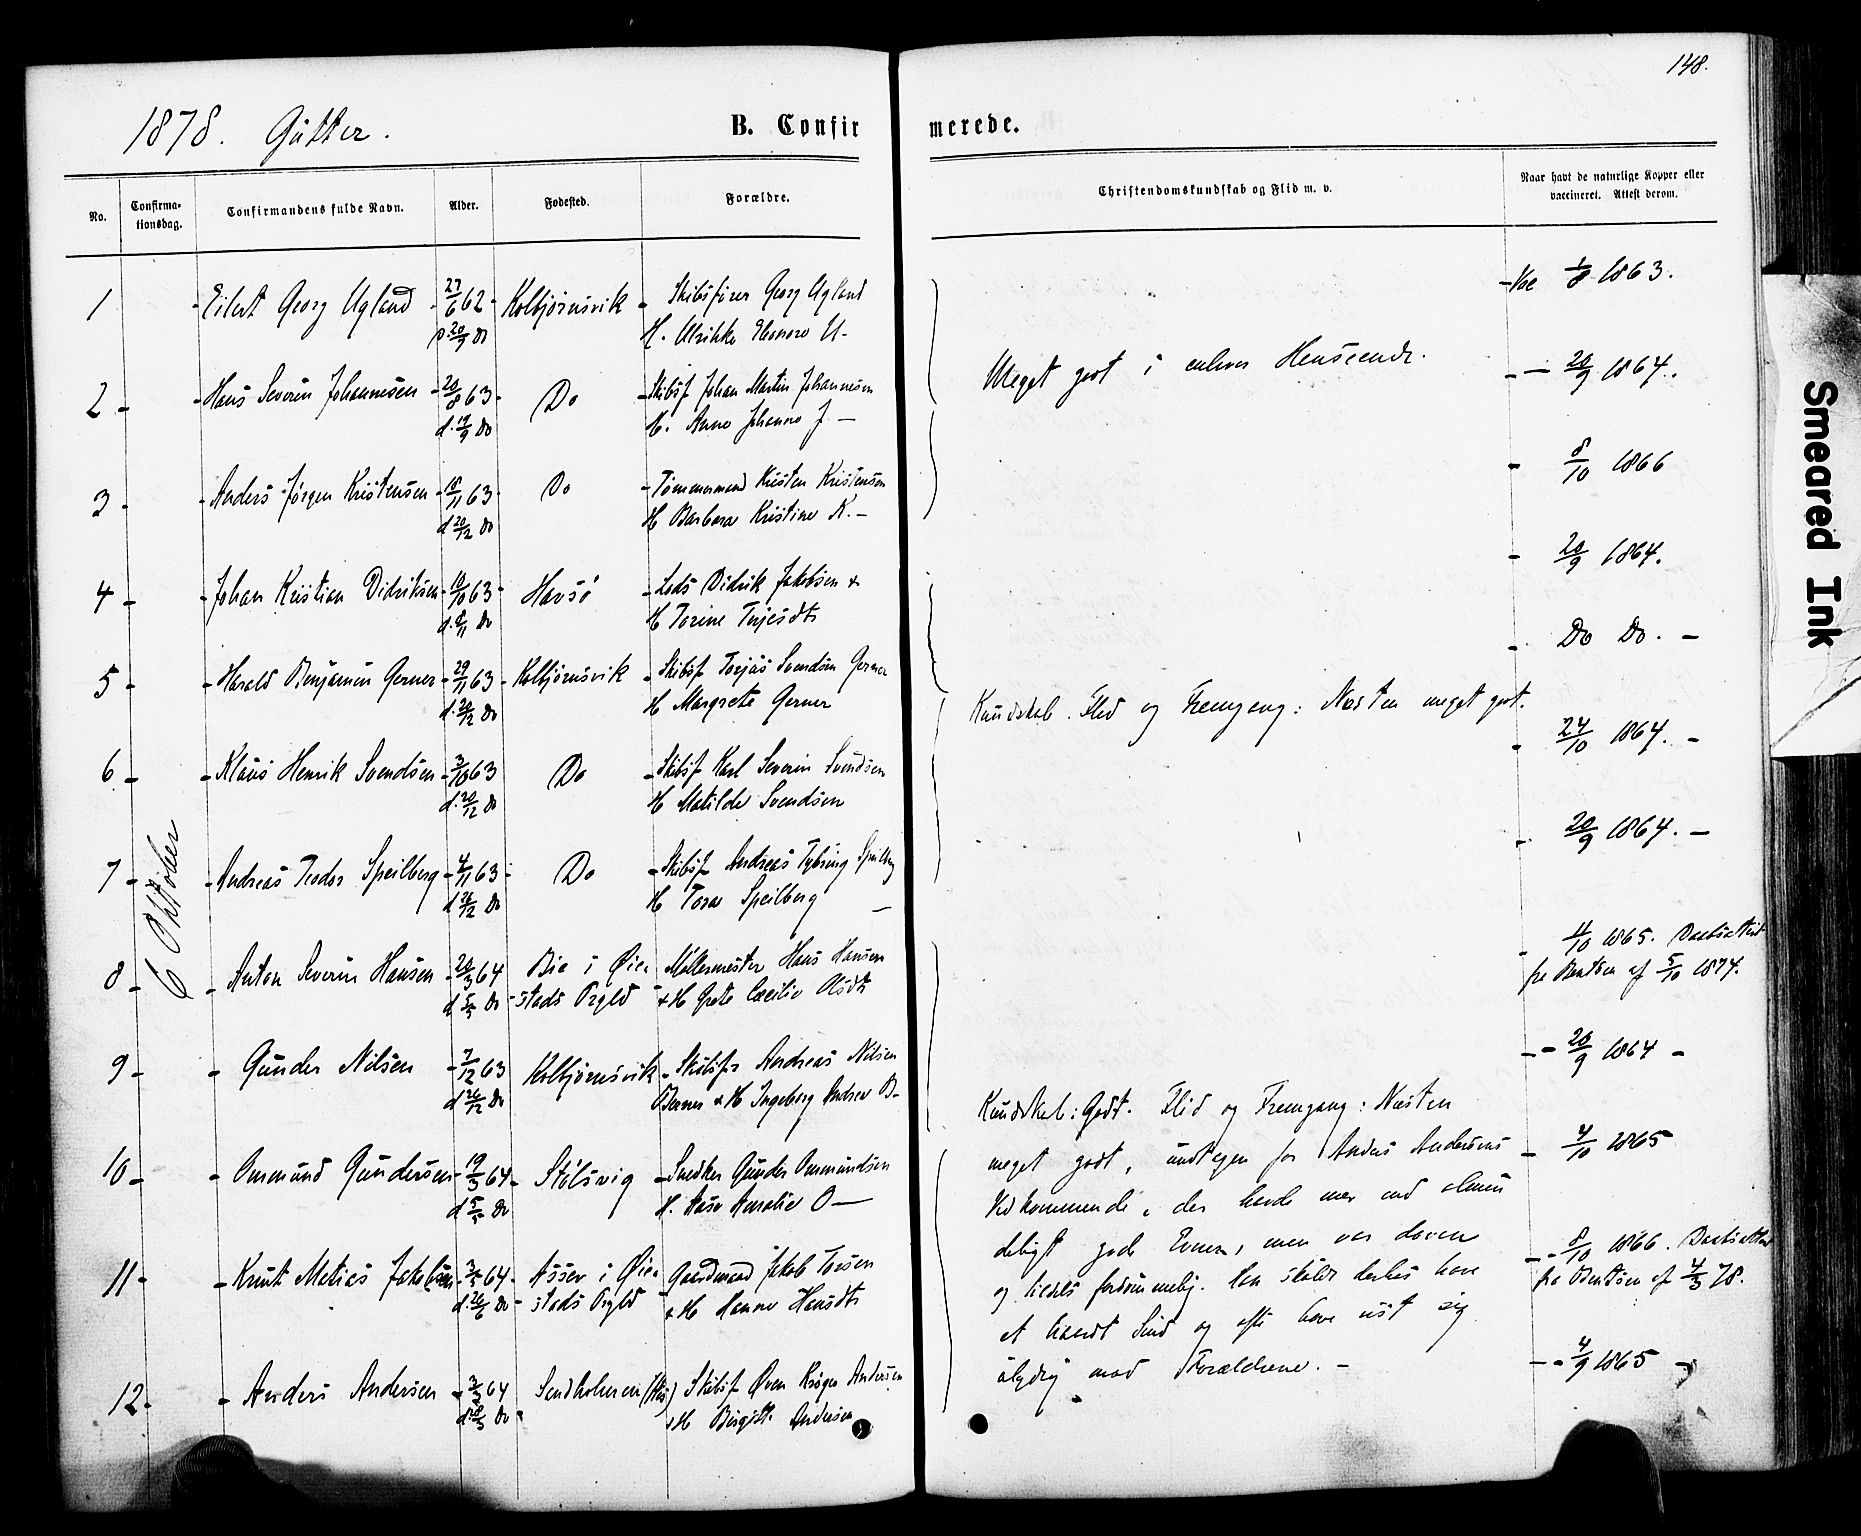 148.
1878. Gutter.
B. Confirmerede.
No.
Confirmationsdag.
Confirmandens fulde Navn.
Alder.
Fødested.
Forældre.
Christendomskundskab og Flid m. v.
Naar havt de naturlige Kopper eller vaccineret. Attest derom.
6 Oktober
1 Eilert Georg Ugland 27/6 62 Kolbjørnsvik Skibsfører Georg Ugland
20/9 Do H. Ulrikke Eleonore U- 1/8 1863.
2 Hans Severin Johannesen 20/8 63 Do Skibsf Johan Martin Johannesen
d. 19/9 Do H. Anne Johanne J. — — 20/9 1864.
Meget godt i enhver Henseende.
3 Anders Jørgen Kristensen 18/11 63 Do Tømmermand Kristen Kristensen
d 20/12 Do H Barbara Kristine K. — 8/10 1866
4 Johan Kristian Didriksen 10/10 63 Havsö Lods Didrik Jakobsen &
d. 8/11 Do H Torine Terjesdt 20/9 1864.
5 Harald Benjamin Gerner 29/11 63 Kolbjørnsvik Skibsf Terjus Svendsen Gerner
d. 20/12 Do H Margrete Gerner Do Do. —
Kundskab. Flid og Fremgang: Næsten meget godt.
6 Klaus Henrik Svendsen 3/10 63 Do Skibsf Karl Severin Svendsen
d. 20/12 Do H Matilde Svendsen 24/10 1864. —
7 Andreas Teodor Speilberg 4/11 63 Do Skibsf Andreas Speilberg
d 26/12 Do H Tora Speilberg — 20/9 1864. —
8 Anton Severin Hansen 20/3 64 Bie i Øie Møllermester Hans Hansen
d 5/5 Do stads Prgld & H Grete Cecilie Olsdt 4/10 1865. Daabsattest
fra Bentsen af 5/10 1874.
9 Gunder Nilsen 7/12 63 Kolbjørnsvik Skibsfr Andreas Nilsen
d 26/12 Do Berner & H Ingeborg Andrea B- 20/9 1864 —
Kundskab: Godt. Flid og Fremgang: Næsten
meget godt, undtagen for Anders Andersens
Vedkommende, der havde mer end almin
deligt gode Evner, men var doven
og tildels forsømmelig. Han skulde derhos have
et haardt Sind og ofte have vist sig
ulydig mod Forældrene. —
10 Ommund Gundersen 19/3 64 Stölsvig Snedker Gunder Ommundsen
d 5/5 Do H. Aase Amalie O — 4/10 1865
11 Knut Matias Jakobsen 3/5 64 Assev i Øie Gaardmand Jakob Tossen
d. 26/6 Do stads Prgld & H Hanne Hansdt 8/10 1866. Daabsattest
fra Bentsen af 4/3 78.
12. Anders Andersen 3/3 64 Sandholmen (His) Skibsf Øven Krøger Andersen
d 28/3 Do & H Birgitte Andersen 4/9 1865 —
Smeared Ink